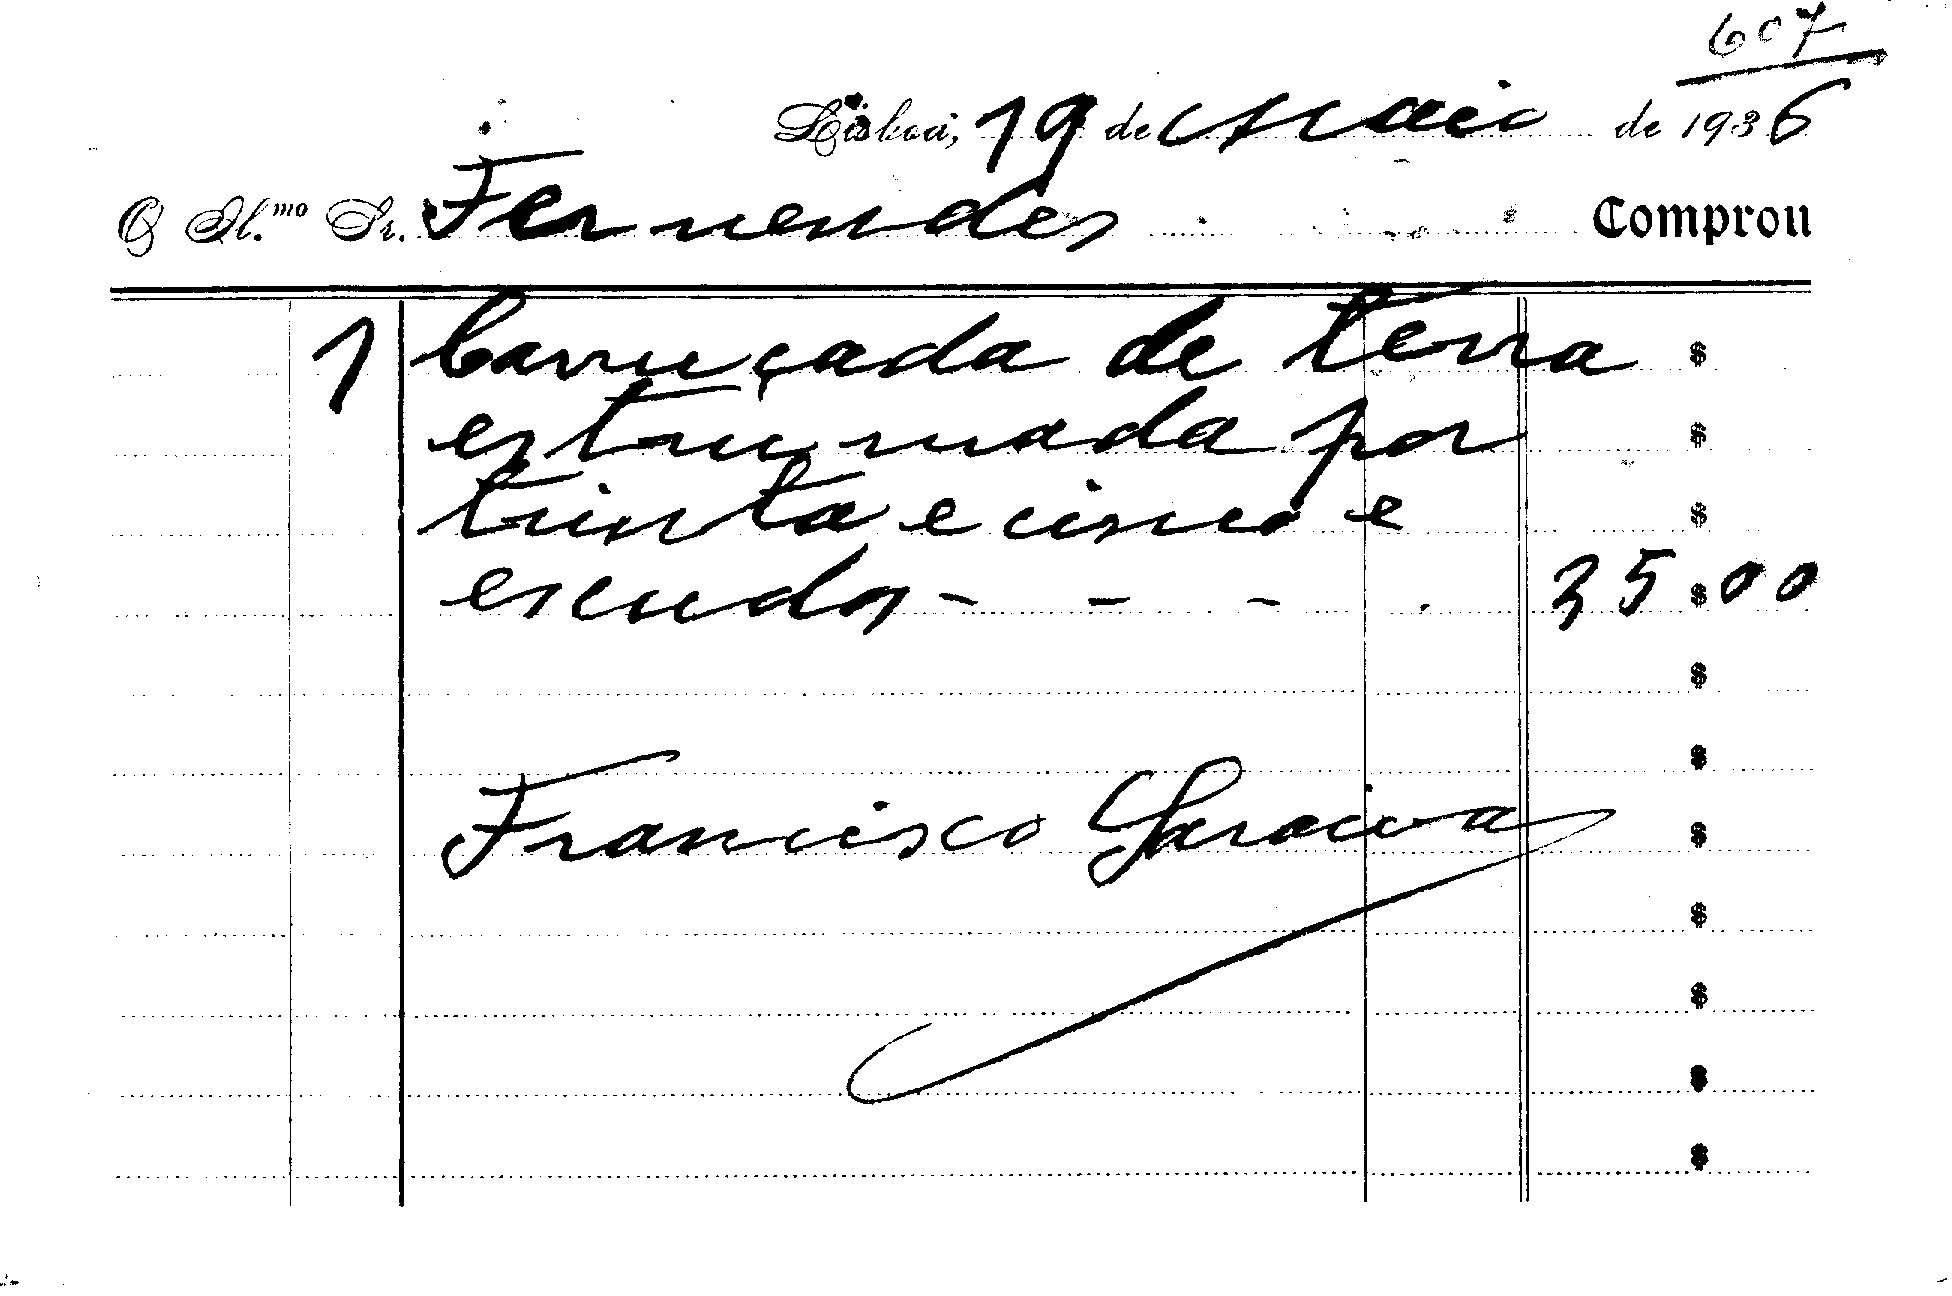 607
Lisboa, 19 de Maio de 1936
O Il.mo Sr. Fernendes Comprou
1 Carruçada de terra $
estrumada por $
trinta e cinco e $
escudos - - - . 35$00
$
$
Francisco Saraiva $
$
$
$
$